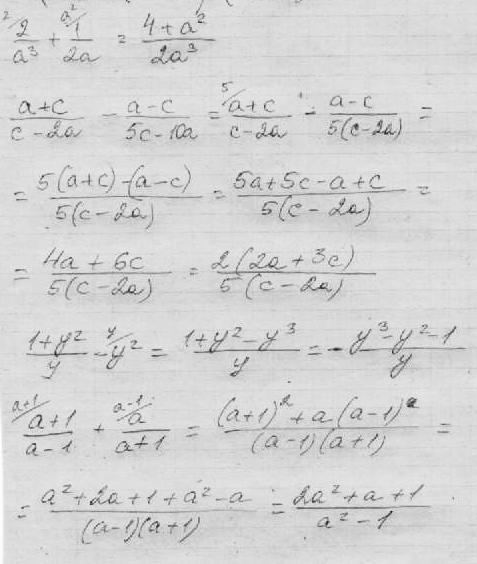 ²/2/a³ + a²/1/2a = (4+a²)/2a³
(a+c)/(c-2a) - (a-c)/(5c-10a) = 5/(a+c)/(c-2a) - (a-c)/5(c-2a) =
= (5(a+c)-(a-c))/5(c-2a) = (5a+5c-a+c)/5(c-2a) =
= (4a+6c)/5(c-2a) = 2(2a+3c)/5(c-2a)
(1+y²)/y - y/y² = (1+y²-y³)/y = - (y³-y²-1)/y
a+1/(a+1)/(a-1) + a-1/a/(a+1) = ((a+1)²+a(a-1))/(a-1)(a+1) =
= (a²+2a+1+a²-a)/(a-1)(a+1) = (2a²+a+1)/(a²-1)